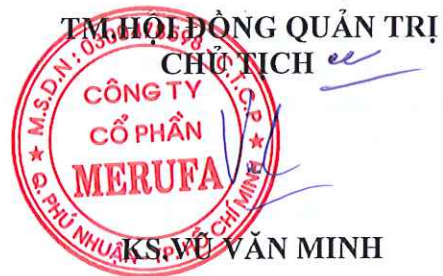 TM.HỘI ĐỒNG QUẢN TRỊ
CHỦ TỊCH
CÔNG TY
CỔ PHẦN
MERUFA
Q. PHÚ NHUẬN - TP. HỒ CHÍ MINH
KS.VŨ VĂN MINH